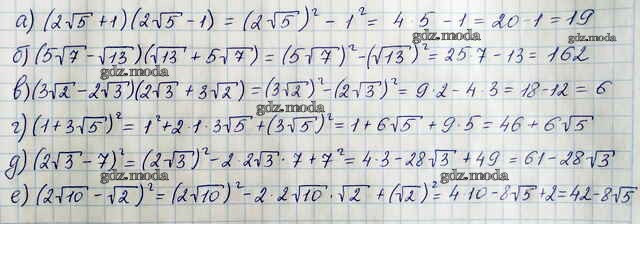 а) (2√5 + 1)(2√5 - 1) = (2√5)² - 1² = 4·5 - 1 = 20 - 1 = 19
gdz.moda gdz.moda
б) (5√7 - √13)(√13 + 5√7) = (5√7)² - (√13)² = 25·7 - 13 = 162
gdz.moda gdz.moda
в) (3√2 - 2√3)(2√3 + 3√2) = (3√2)² - (2√3)² = 9·2 - 4·3 = 18 - 12 = 6
gdz.moda
г) (1 + 3√5)² = 1² + 2·1·3√5 + (3√5)² = 1 + 6√5 + 9·5 = 46 + 6√5
д) (2√3 - 7)² = (2√3)² - 2·2√3·7 + 7² = 4·3 - 28√3 + 49 = 61 - 28√3
gdz.moda gdz.moda
е) (2√10 - √2)² = (2√10)² - 2·2√10·√2 + (√2)² = 4·10 - 8√5 + 2 = 42 - 8√5